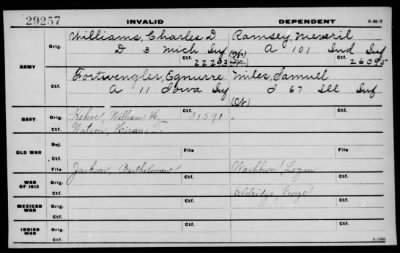 29257
INVALID
DEPENDENT
ARMY
Orig.
Williams, Charles D
D 3 Mich Inf
22293
Ctf.
Ramsey,
A 101 Ind Inf
26095
Orig.
A 11 Iowa Inf
Ctf.
Miles, Samuel
I 67 Ill Inf
Ctf.
NAVY
Orig.
William H.
Ctf.
Watson, Hiram T.
Ctf.
OLD WAR
Rej.
File
File
Ctf.
WAR OF 1812
Orig.
Jackson, Bartholomew
Ctf.
Washburn, Logan
Ctf.
Ctf.
Eldridge, George
MEXICAN WAR
Orig.
Ctf.
Ctf.
INDIAN WAR
Orig.
Ctf.
Ctf.